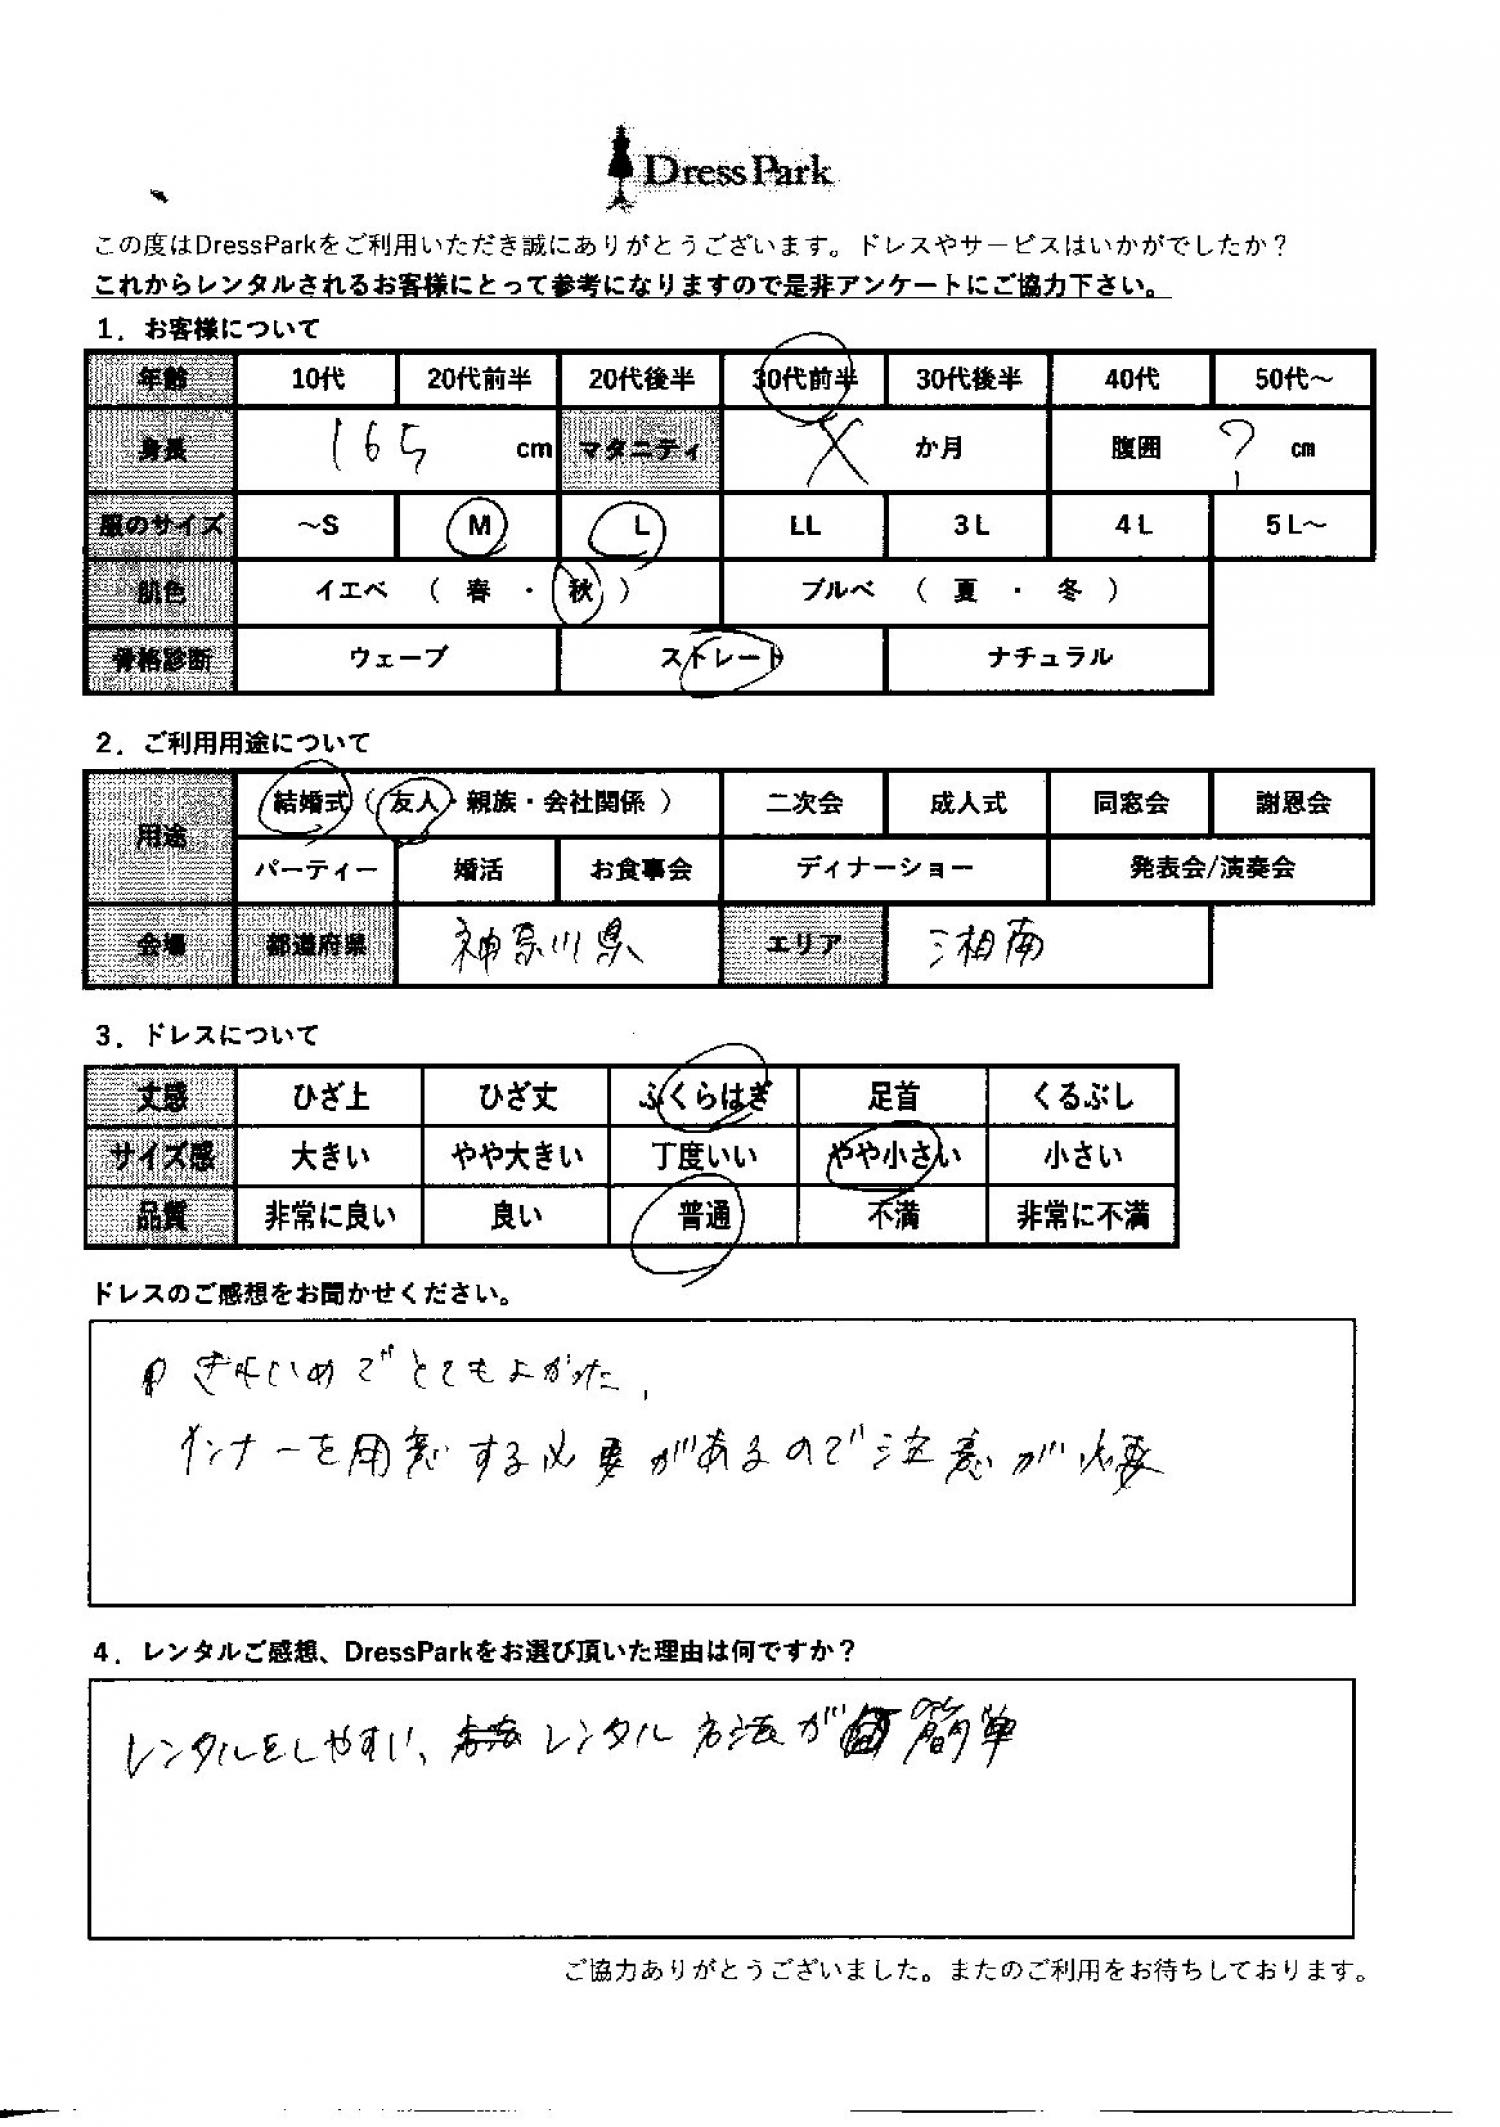 DressPark
この度はDressParkをご利用いただき誠にありがとうございます。ドレスやサービスはいかがでしたか？
これからレンタルされるお客様にとって参考になりますので是非アンケートにご協力下さい。
1．お客様について
年齢 10代 20代前半 20代後半 30代前半 30代後半 40代 50代～
身長 165 cm マタニティ X か月 腹囲 ? cm
服のサイズ ～S M L LL 3L 4L 5L～
肌色 イエベ （ 春 ・ 秋 ） ブルベ （ 夏 ・ 冬 ）
骨格診断 ウェーブ ストレート ナチュラル
2．ご利用用途について
用途 結婚式（ 友人・親族・会社関係 ） 二次会 成人式 同窓会 謝恩会
パーティー 婚活 お食事会 ディナーショー 発表会/演奏会
会場 都道府県 神奈川県 エリア 湘南
3．ドレスについて
丈感 ひざ上 ひざ丈 ふくらはぎ 足首 くるぶし
サイズ感 大きい やや大きい 丁度いい やや小さい 小さい
品質 非常に良い 良い 普通 不満 非常に不満
ドレスのご感想をお聞かせください。
きれいめでとてもよかった、
インナーを用意する必要があるので注意が必要
4．レンタルご感想、DressParkをお選び頂いた理由は何ですか？
レンタルをしやすい、レンタル方法が簡単
ご協力ありがとうございました。またのご利用をお待ちしております。